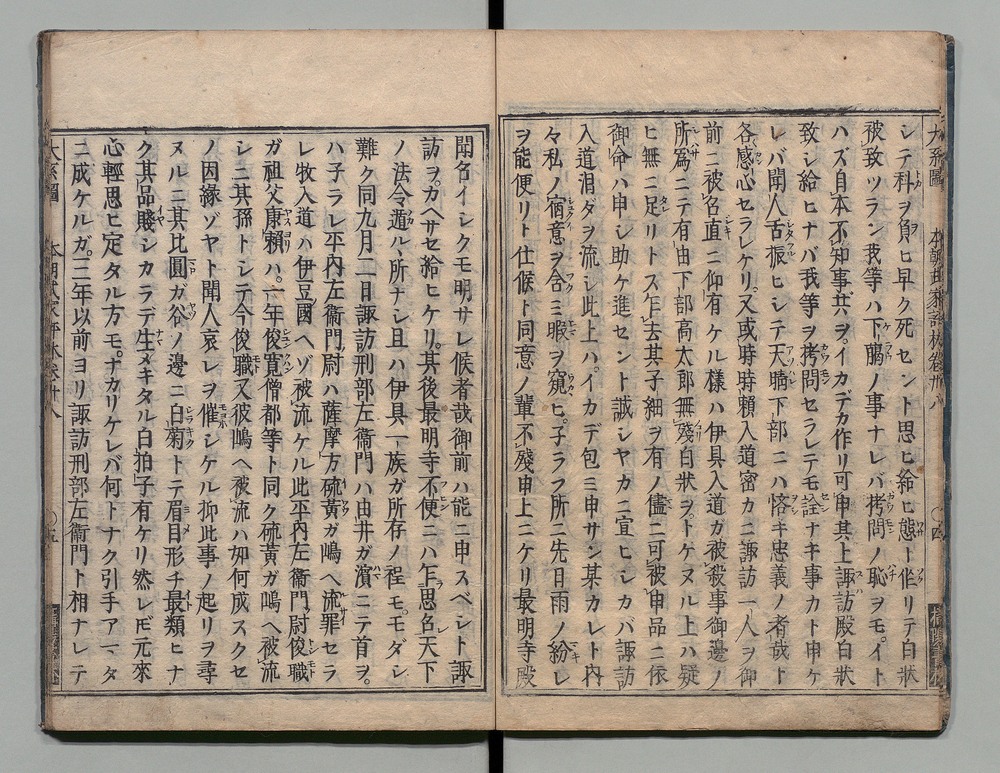 シテ科ヲ負ヒ早ク死セント思ヒ給ヒ態ト作リテ白狀
被致ツラン我等ハ下﨟ノ事ナレバ拷問ノ恥ヲモイト
ハズ自本不知事共ヲイカデカ作リ可申其上諏訪殿白狀
致シ給ヒナバ我等ヲ拷問セラレテモ詮ナキ事カト申ケ
レバ聞人舌振ヒシテ天晴下部ニハ恪キ忠義ノ者哉ト
各感心セラレケリ又或時時賴入道密カニ諏訪一人ヲ御
前ニ被召直ニ仰有ケル樣ハ伊具入道ガ被殺事御邊ノ
所爲ニテ有由下部高太郎無殘白狀ヲトケヌル上ハ疑
ヒ無ニ足リトス乍去其子細ヲ有ノ儘ニ可被申品ニ依
御命ハ申シ助ケ進セント誠シヤカニ宣ヒシカバ諏訪
入道泪ダヲ流シ此上ハイカデ包ミ申サン某カレト内
々私ノ宿意ヲ含ミ暇ヲ窺ヒ子ラフ所ニ先日雨ノ紛レ
ヲ能便リト仕候ト同意ノ輩不殘申上ニケリ最明寺殿
聞召イシクモ明サレ候者哉御前ハ能ニ申スベシト諏
訪ヲカヘサセ給ヒケリ其後最明寺不便ニハ乍思召天下
ノ法令遁ルヽ所ナシ且ハ伊具一族ガ所存ノ程モモダシ
難ク同九月二日諏訪刑部左衞門ハ由井ガ濱ニテ首ヲ。
ハ子ラレ平内左衞門尉ハ薩摩方硫黃ガ嶋ヘ流罪セラ
レ牧入道ハ伊豆國ヘゾ被流ケル此平内左衞門尉俊職
ガ祖父康賴ハ。一年俊寛僧都等ト同ク硫黃ガ嶋ヘ被流
シニ其孫トシテ今俊職又彼嶋ヘ被流ハ如何成スクセ
ノ因緣ゾヤト聞人哀レヲ催シケル抑此事ノ起リヲ尋
ヌルニ其比圓ガ谷ノ邊ニ白菊トテ眉目形チ最類ヒナ
ク其品賤シカラデ生メキタル白拍子有ケリ然レ𪜈元來
心輕思ヒ定タル方モ。ナカリケレバ何トナク引手アマタ
ニ成ケルガ。二年以前ヨリ諏訪刑部左衞門ト相ナレテ